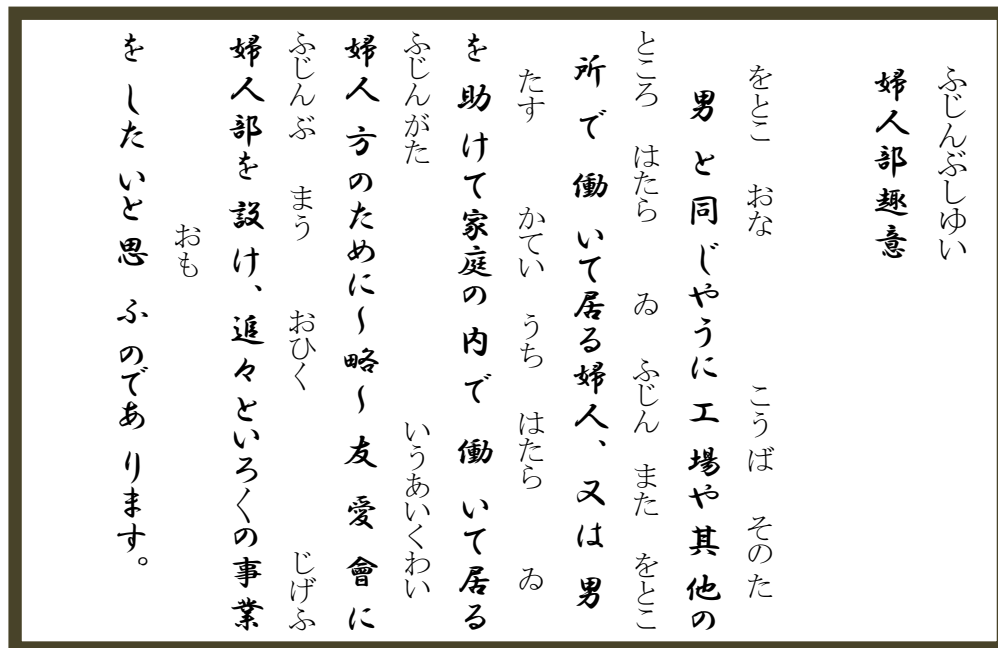 ふじんぶしゆい
婦人部趣意
をとこ おな こうば そのた
男と同じやうに工場や其他の
ところ はたら ゐ ふじん また をとこ
所で働いて居る婦人、又は男
たす かてい うち はたら ゐ
を助けて家庭の内で働いて居る
ふじんがた いうあいくわい
婦人方のために～略～友愛會に
ふじんぶ まう おひ〱 じげふ
婦人部を設け、追々といろ〱の事業
おも
をしたいと思ふのであります。